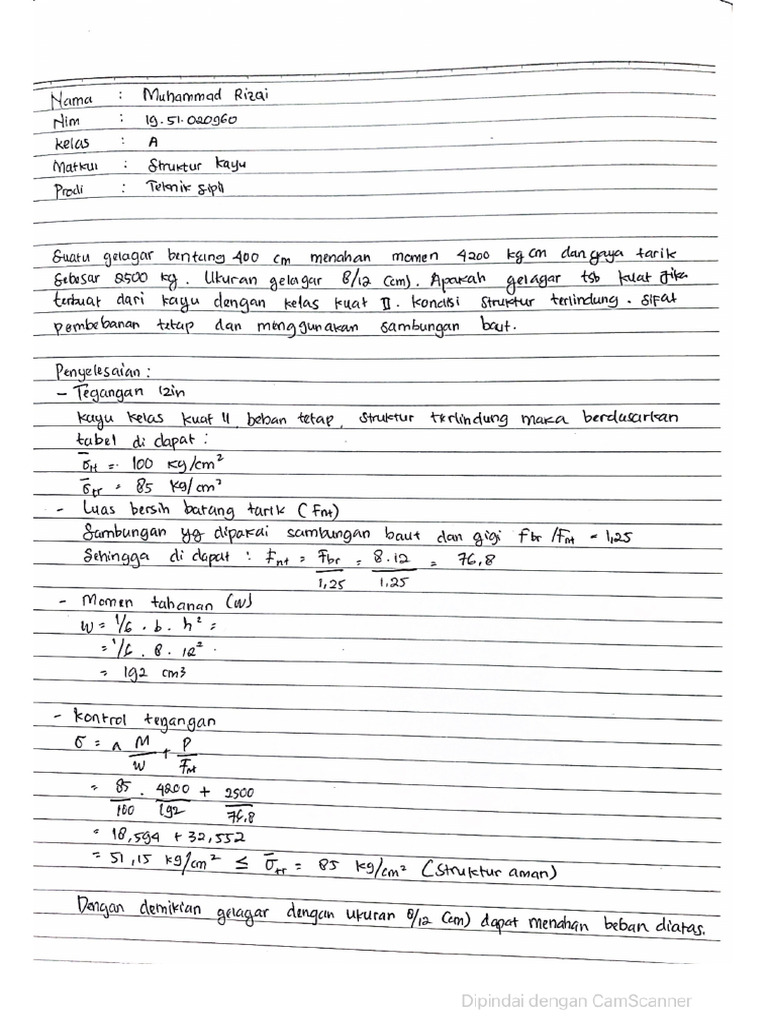 Nama : Muhammad Rizqi
Nim : 19.51.020960
Kelas : A
Matkul : Struktur kayu
Prodi : Teknik Sipil
Suatu gelagar bentang 400 cm menahan momen 4200 kg cm dan gaya tarik
Sebesar 2500 kg. Ukuran gelagar 8/12 (cm). Apakah gelagar tsb kuat jika
terbuat dari kayu dengan kelas kuat II. kondisi struktur terlindung. sifat
pembebanan tetap dan menggunakan sambungan baut.
Penyelesaian :
- Tegangan izin
kayu kelas kuat II, beban tetap, struktur terlindung maka berdasarkan
tabel di dapat :
σ̅lt = 100 kg/cm²
σ̅tr = 85 kg/cm²
- Luas bersih batang tarik (Fnt)
Sambungan yg dipakai sambungan baut dan gigi Fbr/Fnt = 1,25
Sehingga di dapat : Fnt = Fbr/1,25 = 8.12/1,25 = 76,8
- Momen tahanan (W)
W = 1/6 . b . h² =
= 1/6 . 8 . 12² .
= 192 cm3
- Kontrol tegangan
σ = α M/W + P/Fnt
= 85/100 . 4200/192 + 2500/76.8
= 18,594 + 32,552
= 51,15 kg/cm² ≤ σ̅tr = 85 kg/cm² (Struktur aman)
Dengan demikian gelagar dengan ukuran 8/12 (cm) dapat menahan beban diatas.
Dipindai dengan CamScanner